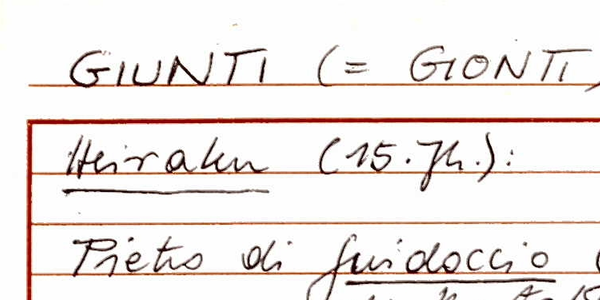 GIUNTI (= GIONTI
Heiraten (15. Jh.):
Pietro di Guidoccio (